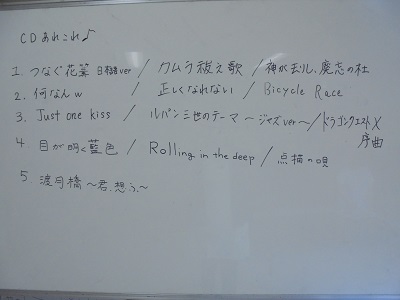 CDあれこれ♪
1. つなぐ花葉 日本語ver / カムラ祓え歌 / 神が去りし、廃志の杜
2. 何なんw / 正しくなれない / Bicycle Race
3. Just one kiss / ルパン三世のテーマ ～ジャズver～ / ドラゴンクエストX
序曲
4. 目が明く藍色 / Rolling in the deep / 点描の唄
5. 渡月橋 ～君想ふ～